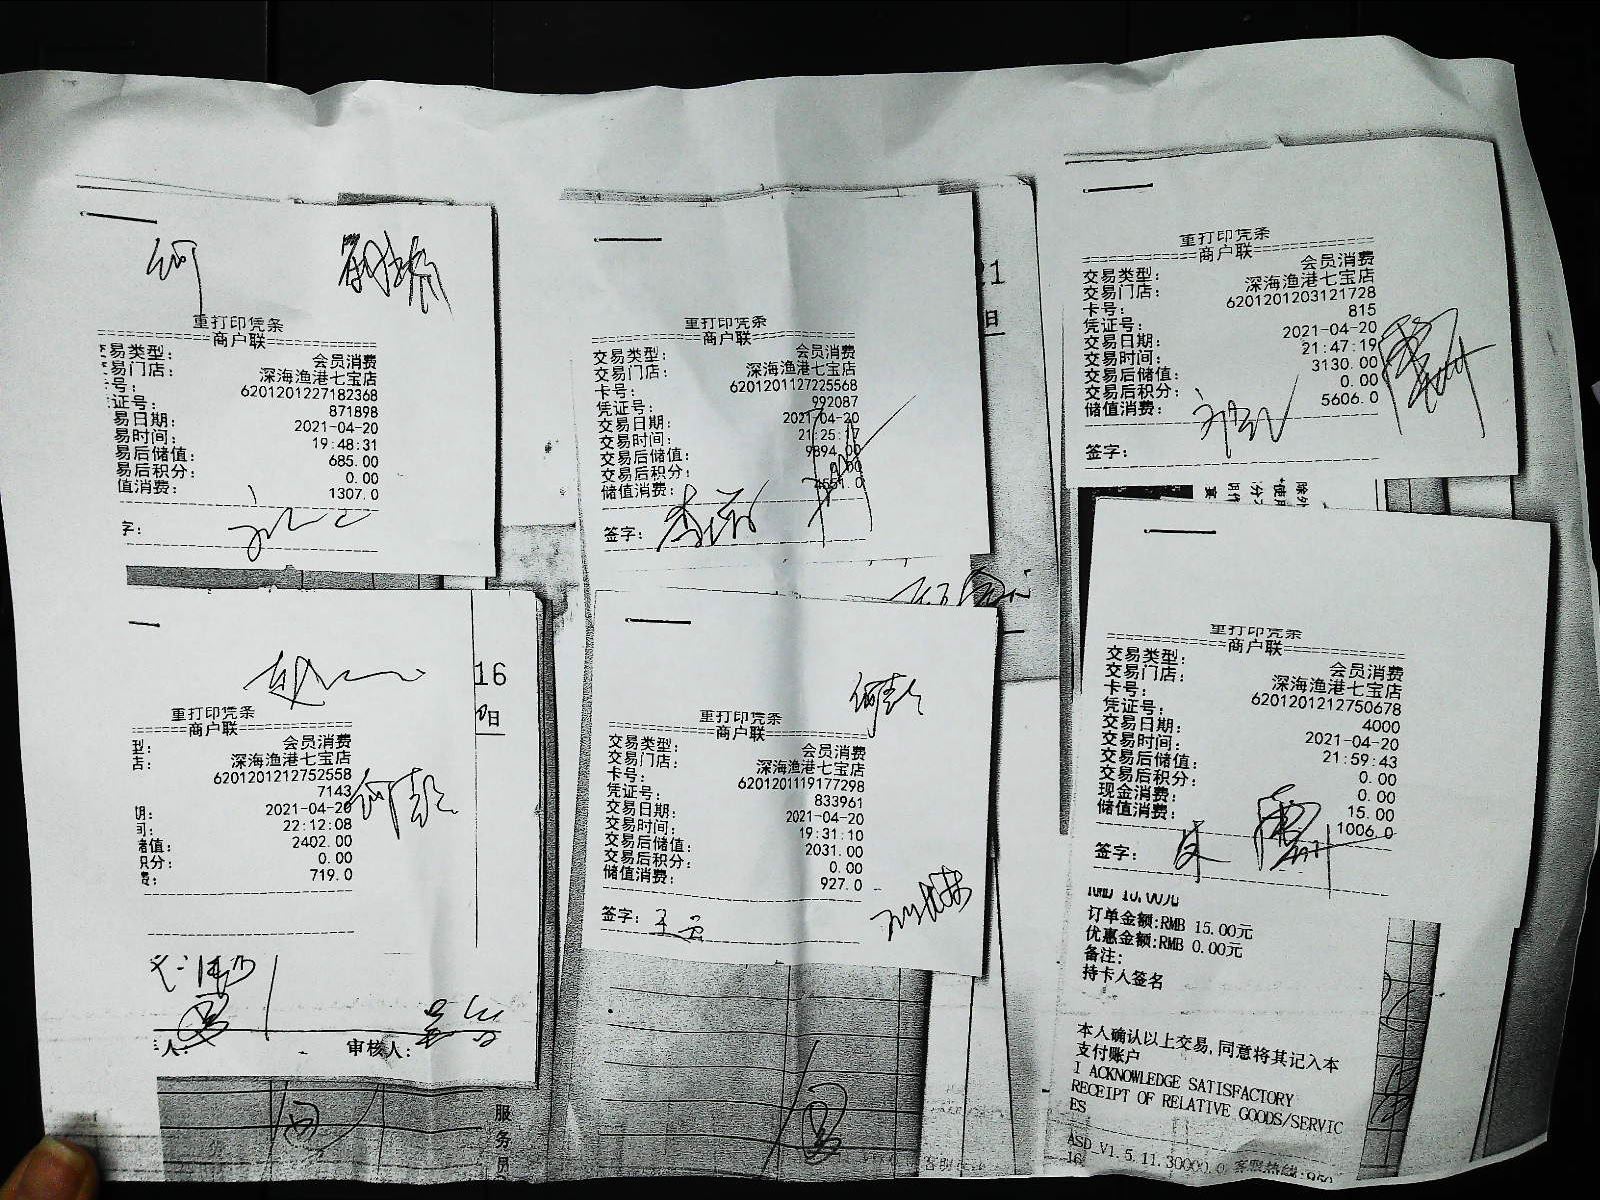 重打印凭条
商户联
交易类型： 会员消费
交易门店： 深海渔港七宝店
号： 6201201227182368
证号： 871898
易日期： 2021-04-20
易时间： 19:48:31
易后储值： 685.00
易后积分： 0.00
值消费： 1307.0
字：
重打印凭条
商户联
交易类型： 会员消费
交易门店： 深海渔港七宝店
卡号： 6201201127225568
凭证号： 992087
交易日期： 2021-04-20
交易时间： 21:25:17
交易后储值： 9894.00
交易后积分： 0.00
储值消费：
签字：
21
日
重打印凭条
商户联
交易类型： 会员消费
交易门店： 深海渔港七宝店
卡号： 6201201203121728
凭证号： 815
交易日期： 2021-04-20
交易时间： 21:47:19
交易后储值： 3130.00
交易后积分： 0.00
储值消费： 5606.0
签字：
重打印凭条
商户联
型： 会员消费
店： 深海渔港七宝店
6201201212752558
7143
期： 2021-04-20
间： 22:12:08
储值： 2402.00
积分： 0.00
费： 719.0
何
16
日
人：
审核人：
服务员
重打印凭条
商户联
交易类型： 会员消费
交易门店： 深海渔港七宝店
卡号： 6201201119177298
凭证号： 833961
交易日期： 2021-04-20
交易时间： 19:31:10
交易后储值： 2031.00
交易后积分： 0.00
储值消费： 927.0
签字：
重打印凭条
商户联
交易类型： 会员消费
交易门店： 深海渔港七宝店
卡号： 6201201212750678
凭证号： 4000
交易日期： 2021-04-20
交易时间： 21:59:43
交易后储值： 0.00
交易后积分： 0.00
现金消费： 15.00
储值消费： 1006.0
签字：
订单金额:RMB 15.00元
优惠金额:RMB 0.00元
备注:
持卡人签名
本人确认以上交易,同意将其记入本
支付账户
I ACKNOWLEDGE SATISFACTORY
RECEIPT OF RELATIVE GOODS/SERVIC
ES
ASD_V1.5.11.30000.0 客服热线:950
16